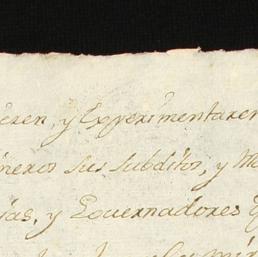 eren, y Experimentaren
neros sus subditos, y Ma
ias, y Governadores